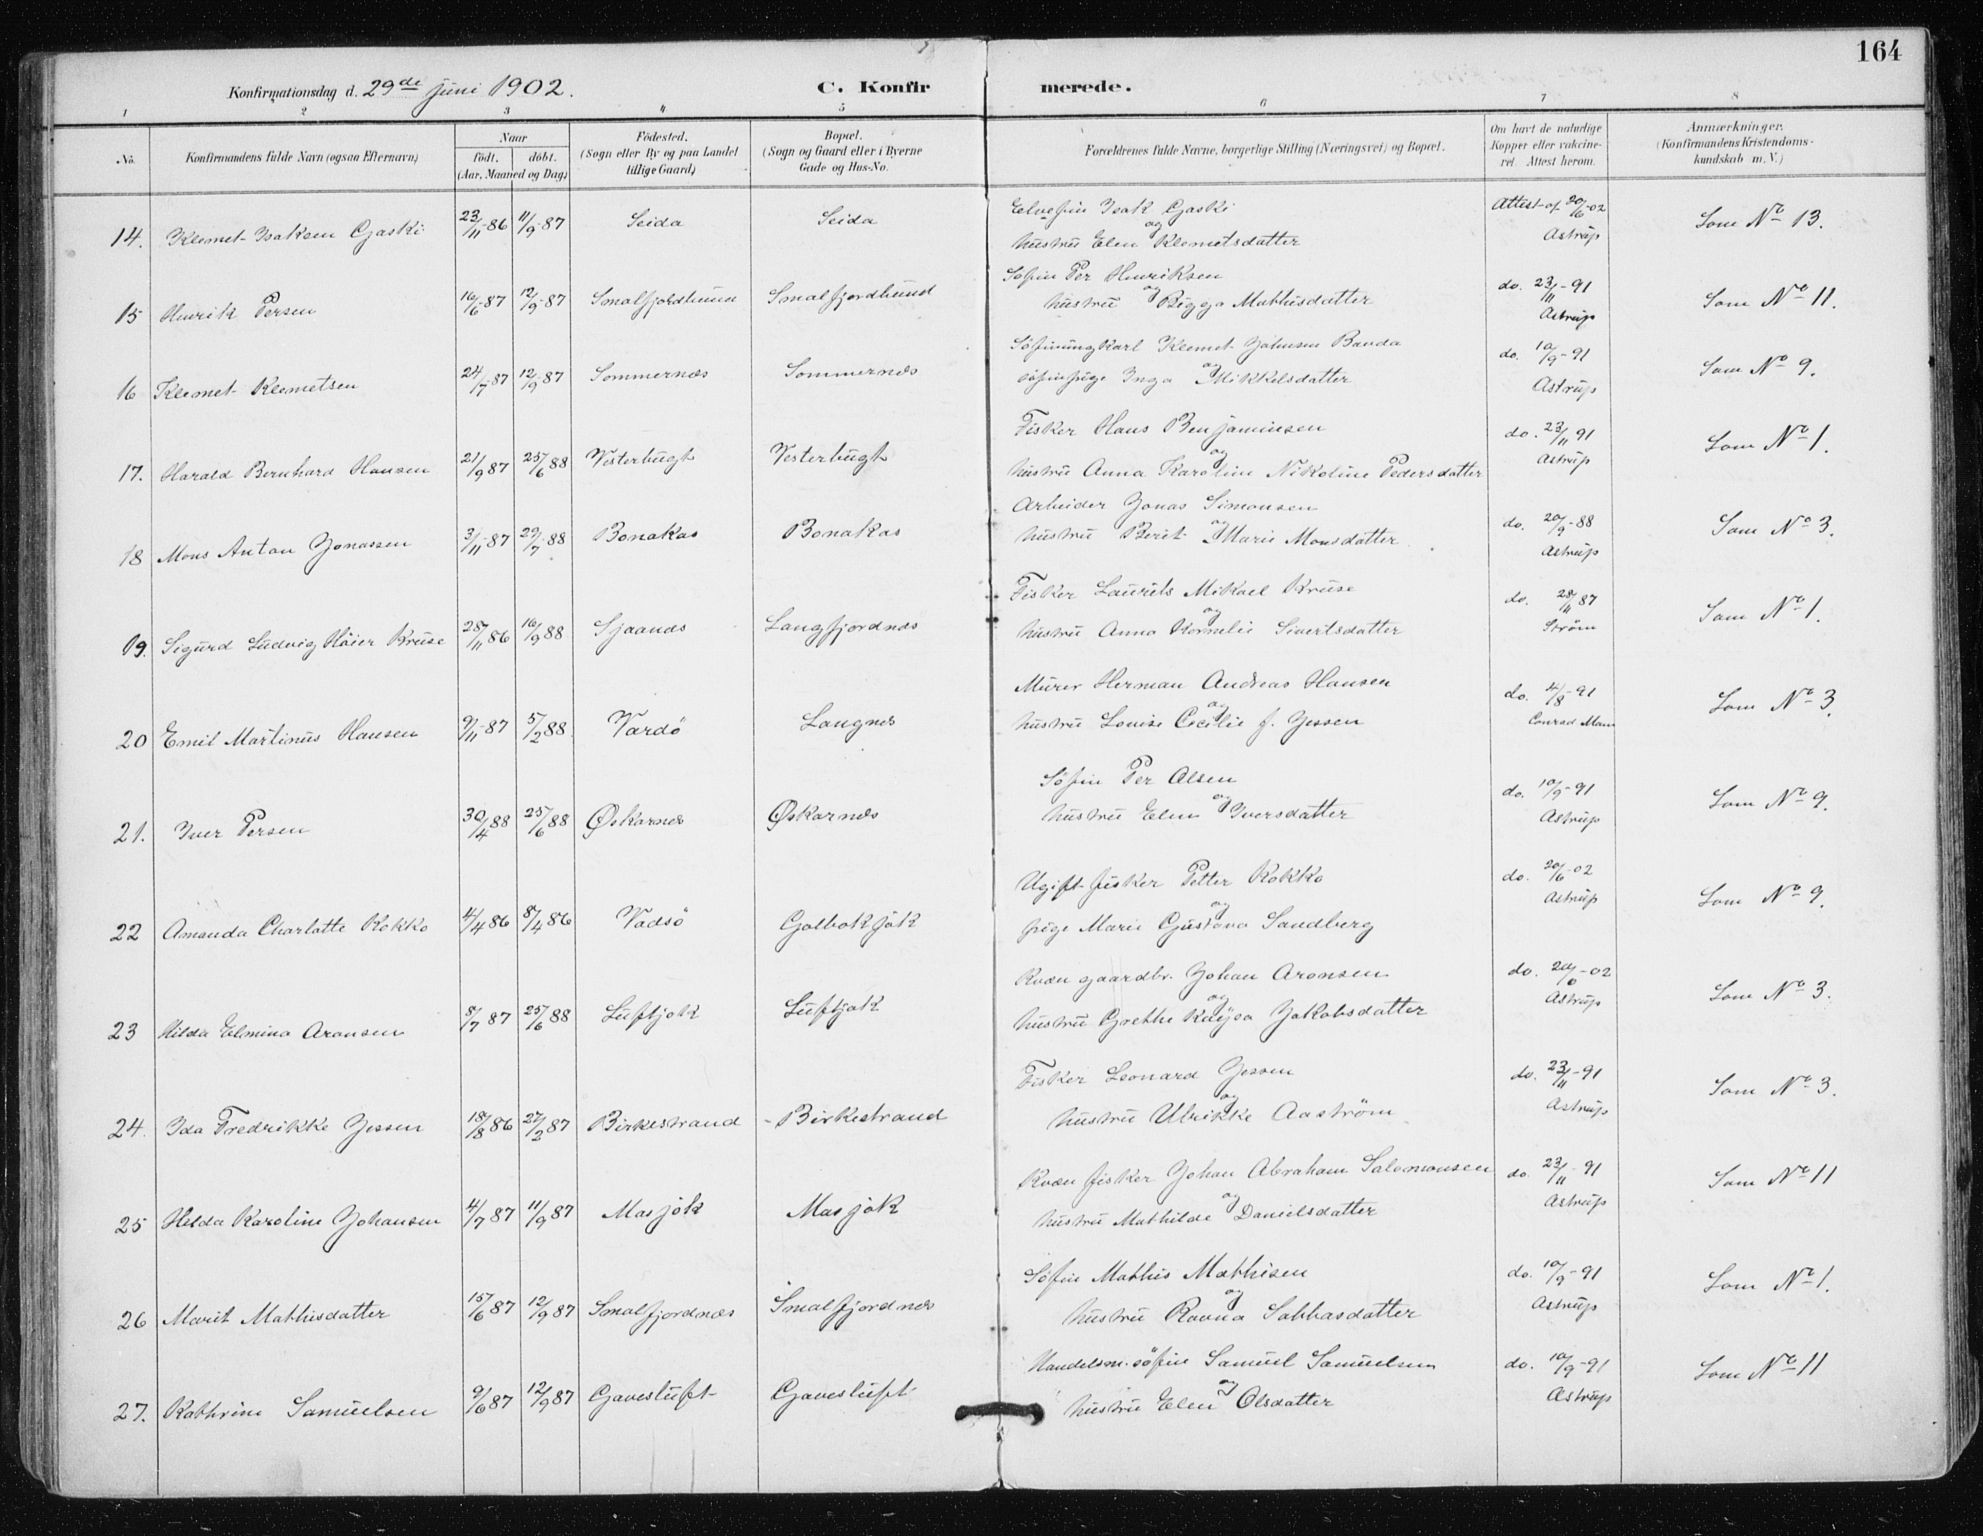 164
Konfirmationsdag d. 29de juni 1902. C. Konfir merede.
1 2 3 4 5 6 7 8
No. Konfirmandens fulde Navn (ogsaa Efternavn) Naar födt. döbt. (Aar, Maaned og Dag) Födested. (Sogn eller By og paa Landet tillige Gaard) Bopæl. (Sogn og Gaard eller i Byerne Gade og Hus-No. Forældrenes fulde Navne, borgerlige Stilling (Næringsvei) og Bopæl. Om havt de naturlige Kopper eller vakcineret. Attest herom. Anmærkninger. (Konfirmandens Kristendomskundskab m. V.)
Elvefin Isak Gaski Attest af 20/6-02
14. Klemet Isaksen Gaski 23/11-86 11/9-87 Seida Seida og hustru Elen Klemetsdatter Astrup Som No 13.
Søfin Per Henriksen do. 23/11-91
15 Henrik Persen 16/6-87 12/9-87 Smalfjordbund Smalfjordbund og hustru Bigga Mathisdatter Astrup Som No 11.
Søfinungkarl Klemet Johnsen Banda do. 10/9-91
16 Klemet Klemetsen 24/7-87 12/9 87 Sommernes Sommernes og søfinpige Inga Mikkelsdatter Astrup Som No 9.
Fisker Hans Benjaminsen do. 23/11 91
17. Harald Bernhard Hansen 21/9 87 25/6 88 Vesterbugt Vesterbugt og hustru Anna Karoline Nikoline Pedersdatter Astrup Som No 1.
Arbeider Jonas Simonsen do. 20/9-88
18 Mons Anton Jonassen 3/11-87 29/7-88 Bonakas Bonakas og hustru Berit Marie Monsdatter Astrup Som No 3.
Fisker Laurits Mikael Kruse do. 28/11 87
19. Sigurd Ludvig Høier Kruse 28/11 86 16/9 88 Sjaanæs Langfjordnæs og hustru Anna Kornelie Sivertsdatter Strøm Som No 1.
Murer Herman Andreas Hansen do. 4/8-91
20 Emil Martinus Hansen 9/11-87 5/2 88 Vardö Langnes og hustru Louise Cecilie f. Jessen Conrad Mam Som No 3.
Søfin Per Olsen do. 10/9-91
21. Iver Persen 30/4 88 25/6 88 Øskarnes Øskarnes og hustru Elen Iversdatter Astrup Som No 9.
Ugift fisker Petter Kokko do. 20/6-02
22 Amanda Charlotte Kokko 4/4 86 8/4 86 Vadsö Golbokjok og pige Marie Gustava Sandberg Astrup Som No 9.
Kvæn gaardbr. Johan Aronsen do. 20/6-02
23 Hilda Elmina Aronsen 8/7 87 25/6 88 Luftjok Luftjok og hustru Grethe Kaysa Jakobsdatter Astrup Som No 3.
Fisker Leonard Jessen do. 23/11-91
24. Ida Fredrikke Jessen 18/8 86 27/2 87 Birkestrand Birkestrand og hustru Ulrikke Aaström Astrup Som No 3.
Kvæn fisker Johan Abraham Salomonsen do. 23/11 91
25 Helda Karoline Johansen 4/7 87 11/9 87 Masjok Masjok og hustru Mathilde Danielsdatter Astrup Som No 11
Søfin Mathis Mathisen do. 10/9-91
26 Marit Mathisdatter 15/6 87 12/9 87 Smalfjordnæs Smalfjordnæs og hustru Ravna Sabbasdatter Astrup Som No 1.
Handelsm. søfin Samuel Samuelsen do. 10/9-91
27. Kathrine Samuelsen 9/6 87 12/9 87 Gavesluft Gavesluft og hustru Elen Olsdatter Astrup Som No 11